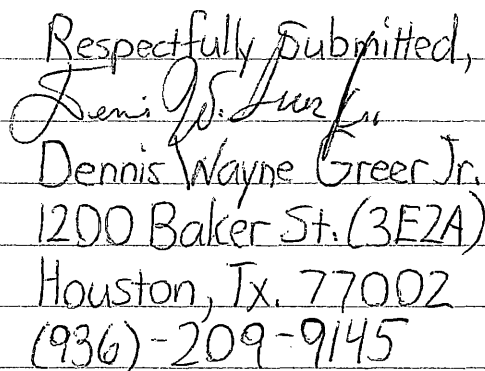 Respectfully Submitted,
Dennis W. Greer Jr.
Dennis Wayne Greer Jr.
1200 Baker St. (3E2A)
Houston, Tx. 77002
(936)-209-9145